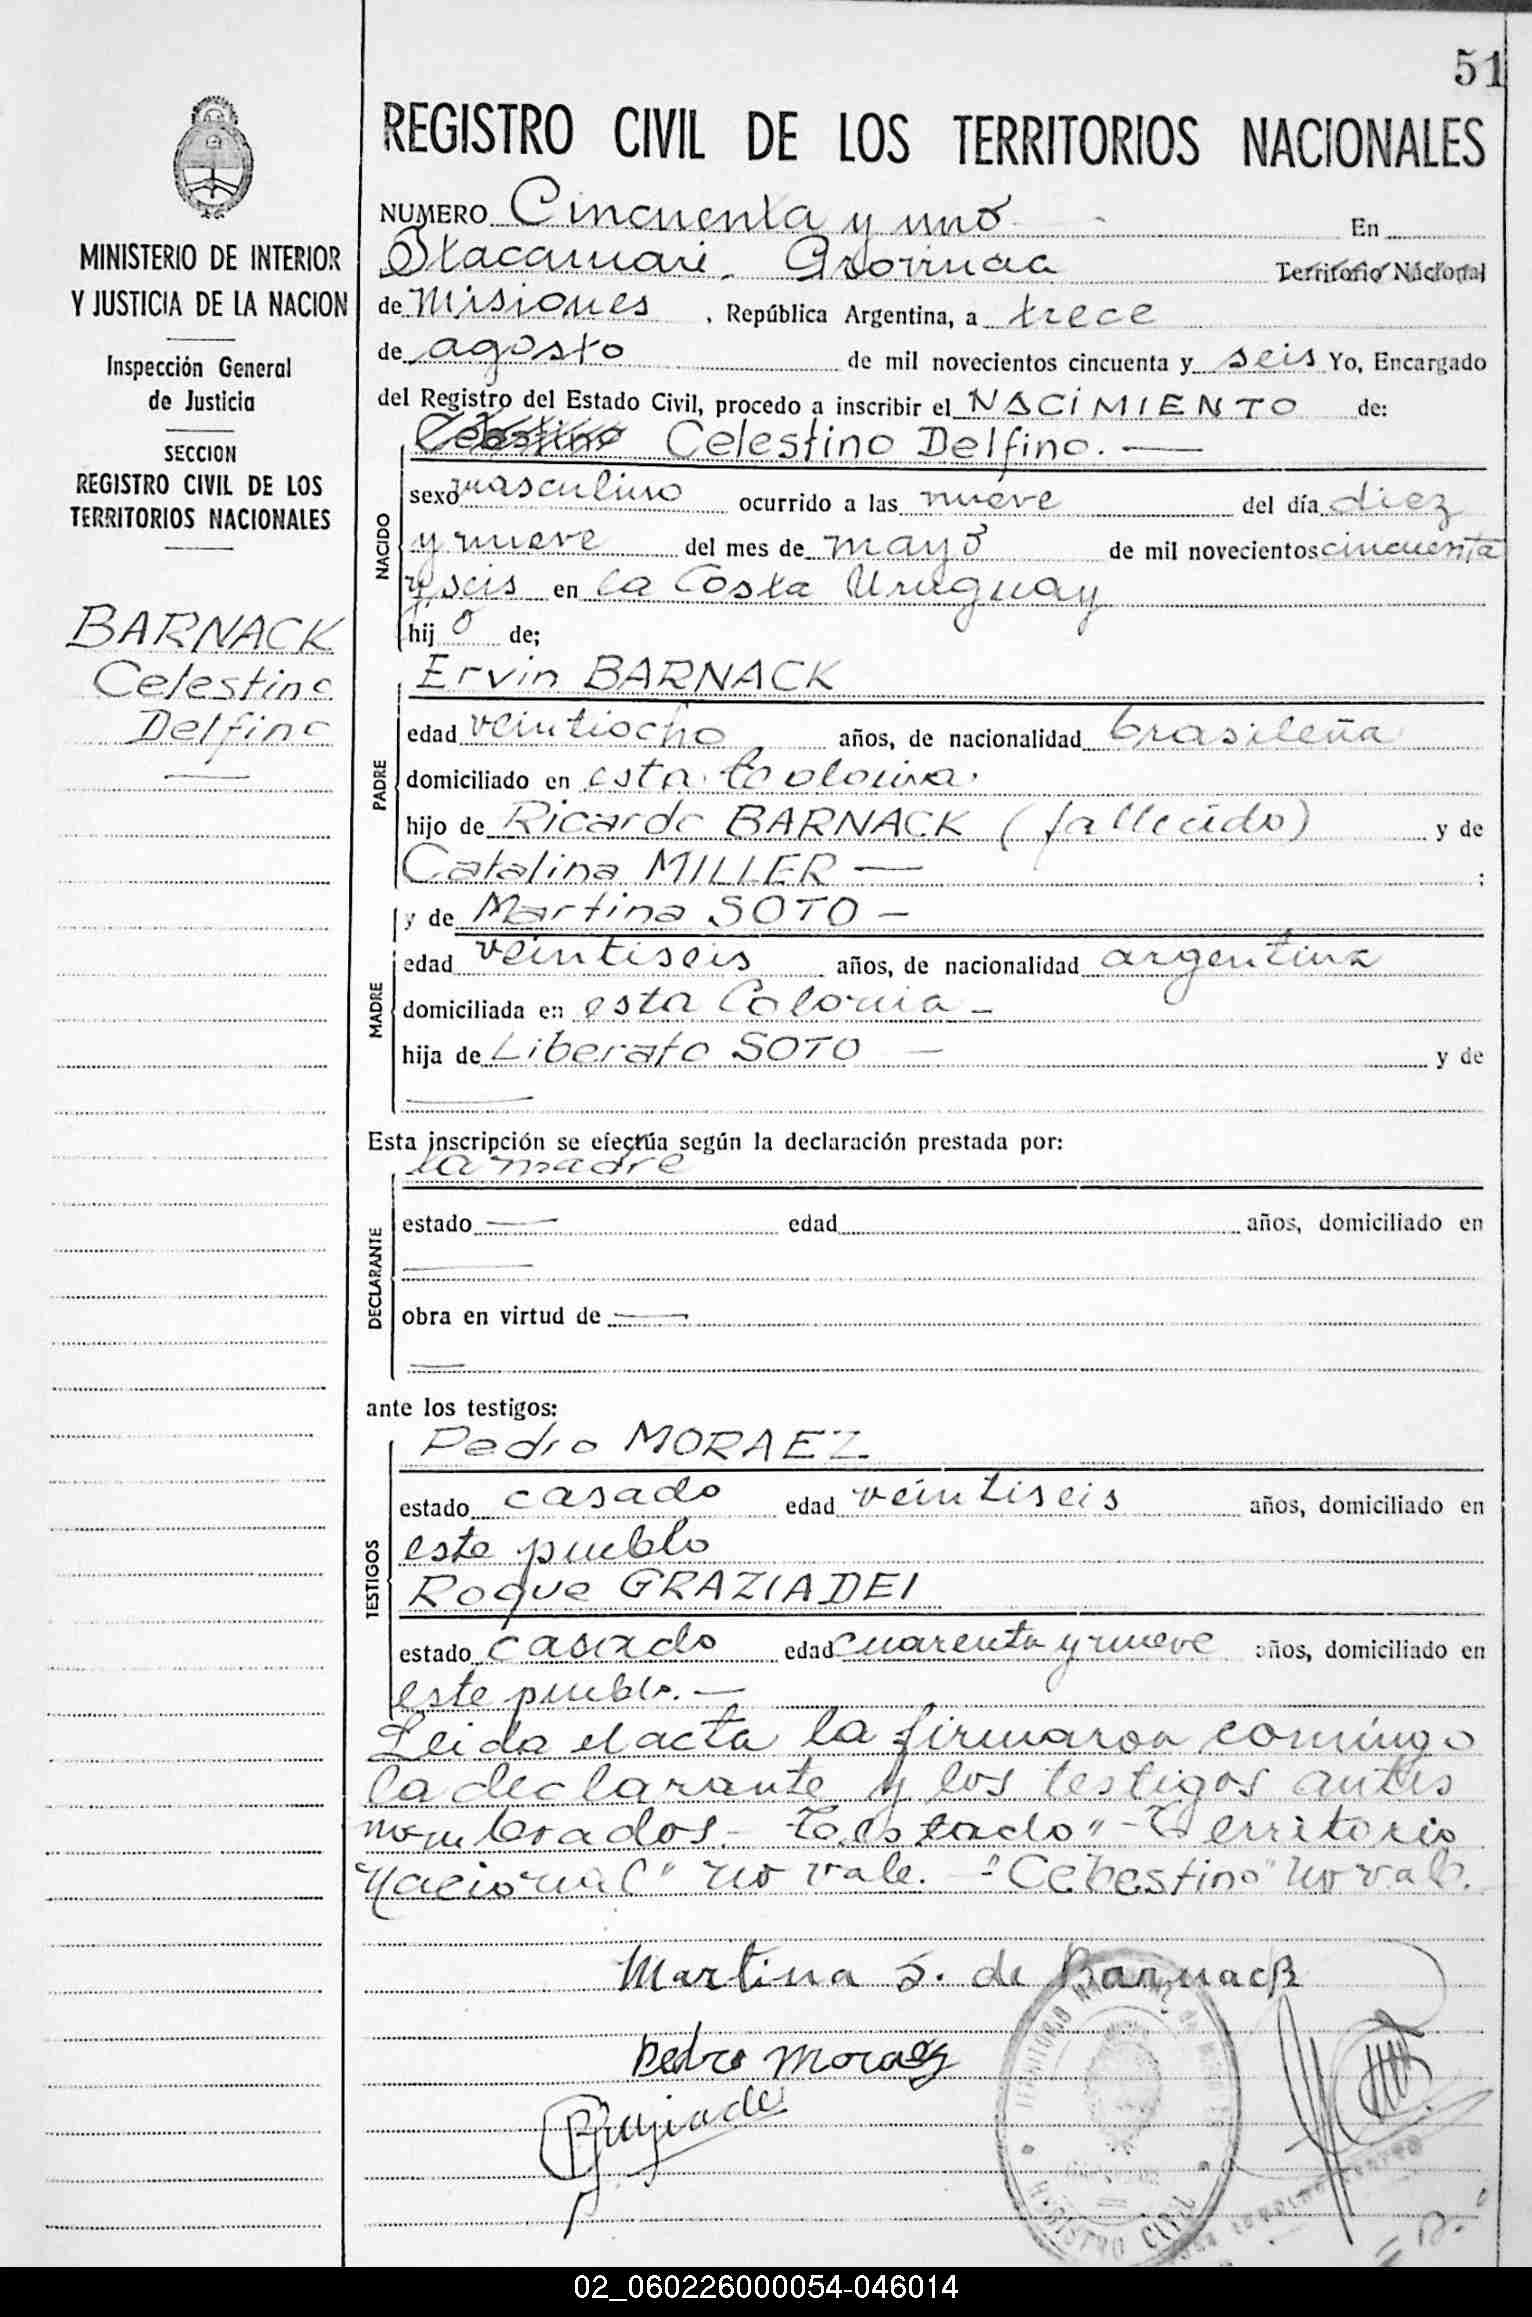 51
REGISTRO CIVIL DE LOS TERRITORIOS NACIONALES
MINISTERIO DE INTERIOR
Y JUSTICIA DE LA NACION
Inspección General
de Justicia
SECCION
REGISTRO CIVIL DE LOS
TERRITORIOS NACIONALES
BARNACK
Celestino
Delfino
NUMERO Cincuenta y uno En
Itacaruaré, Provincia Territorio Nacional
de Misiones, República Argentina, a trece
de agosto de mil novecientos cincuenta y seis Yo, Encargado
del Registro del Estado Civil, procedo a inscribir el NACIMIENTO de:
Cebestino Celestino Delfino. —
NACIDO
sexo masculino ocurrido a las nueve del día diez
y nueve del mes de mayo de mil novecientos cincuenta
y seis en la Costa Uruguay
hijo de;
Ervin BARNACK
PADRE
edad veintiocho años, de nacionalidad brasileña
domiciliado en esta
hijo de Ricardo BARNACK (fallecido) y de
Catalina MILLER — ;
y de Martina SOTO —
MADRE
edad veintiseis años, de nacionalidad argentina
domiciliada en esta Colonia —
hija de Liberato SOTO — y de
—
Esta inscripción se efectúa según la declaración prestada por:
la madre
DECLARANTE
estado — edad años, domiciliado en
—
obra en virtud de —
—
ante los testigos:
Pedro MORAEZ
TESTIGOS
estado casado edad veintiseis años, domiciliado en
este pueblo
Roque GRAZIADEI
estado casado edad cuarenta y nueve años, domiciliado en
este pueblo. —
Leida el acta la firmaron conmigo
la declarante y los testigos antes
nombrados - Testado "Territorio
Nacional" no vale. - "Cebestino" no vale.
Martina S. de Barnack
Pedro Moraez
TERRITORIO
REGISTRO CIVIL
02_060226000054-046014